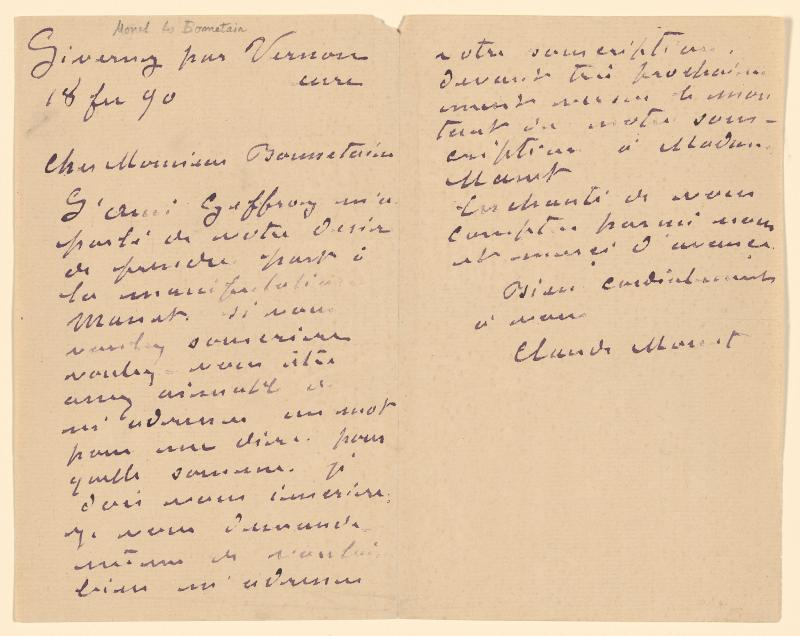 Monet to Bonnetain
Giverny par Vernon
eure
18 fev 90
Cher Monsieur Bonnetain
L'ami Geffroy m'a
parlé de votre desir
de prendre part à
la manifestation
Manet. si vous
voulez souscrire
voulez-vous être
assez aimable de
m'adresser un mot
pour me dire pour
quelle somme je
dois vous inscrire.
je vous demande
même de vouloir
bien m'adresser
votre souscription.
devant très prochaine
ment verser le mon
tant de notre sous-
cription à Madame
Manet
Enchanté de vous
compter parmi nous
et merci d'avance.
Bien cordialement
à vous
Claude Monet